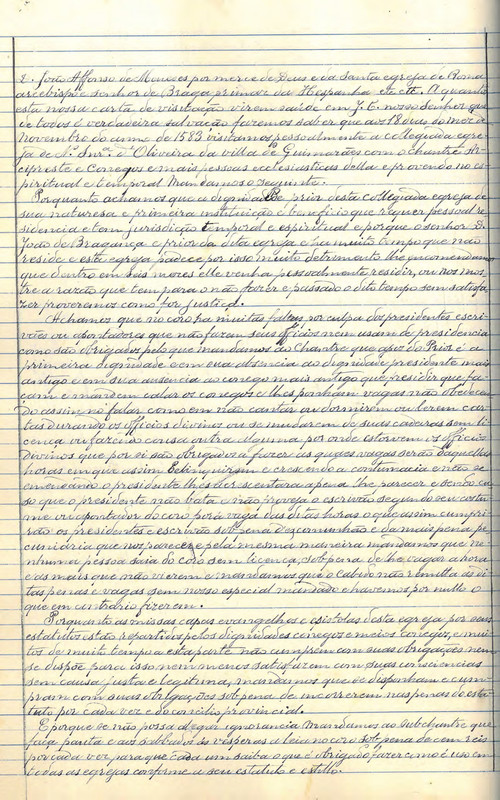 D. João Affonso de Menezes por merce de Deus e da Santa egreja de Roma
arcebispo e senhor de Braga primaz da Hespanha etc etc. A quantos
esta nossa carta de visitação virem saúde em J. C. nosso Senhor que
de todos é verdadeira salvação fazemos saber que aos 18 dias do mez de
novembro do anno de 1583 visitamos pessoalmente a collegiada egre-
ja de N. Snr.ª d'Oliveira da villa de Guimarães com o chantre Ar-
cipreste e Conegos e mais pessoas ecclesiasticas della e provendo no es-
piritual e temporal mandamos o seguinte.
Porquanto achamos que a dignidade prior desta collegiada egreja de
sua naturesa e primeira instituição é beneficio que requer pessoal re-
sidencia e tem jurisdição temporal e espiritual e porque o senhor D.
João de Bragança é prior da dita egreja e ha muito tempo que não
reside e esta egreja padece por isso muito detrimento lhe encomendamos
que dentro em seis mezes elle venha pessoalmente residir, ou nos mos-
tre a razão que tem para o não fazer e passado o dito tempo sem satisfa-
zer proveramos como for justiça.
Achamos que no coro ha muitas faltas por culpa dos presidentes escri-
vães ou apontadores que não fazem seus officios nem usam de presidencia
como são obrigados pelo que mandamos ao Chantre que apoz do Prior é a
primeira dignidade e em sua absencia ao dignidade presidente mais
antigo e em sua ausencia ao conego mais antigo que presidir que fa-
çam e mandem calar os conegos e lhes ponham vagas não obedecen-
do assim no falar como em não cantar ou dormirem ou lerem car-
tas durando os officios divinos ou se mudarem de suas cadeiras sem li-
cença ou fazendo cousa outra alguma por onde estorvem os officios
Divinos que por si são obrigados a fazer as quaes vagas serão daquellas
horas em que assim delinquirem e crescendo a contumacia e não se
emendando o presidente lhes accrescentara a pena que lhe parecer e sendo ca-
so que o presidente não bata e não proveja o escrivão segundo seu costu-
me ou apontador do coro porá vaga das ditas horas o que assim cumpri-
rão os presidentes e escrivão sob pena d'excommunhão e da mais pena pe-
cuniaria que nos parecer e pela mesma maneira mandamos que ne-
nhuma pessoa saia do coro sem licença, sob pena de lhe vagar a hora
e as mais que não vierem e mandamos que o Cabido não remitta as di-
tas penas e vagas sem nosso especial mandado e havemos por nullo o
que em contrario fizerem.
Porquanto as missas capas evangelhos e epistolas desta egreja por seus
estatutos estão repartidos pelos dignidades conegos e meios conegos, e mui-
tos de muito tempo a esta parte não cumprem com suas obrigações nem
se dispõe para isso nem menos satisfazem com suas consciencias
sem causa justa e legitima, mandamos que se disponham e cum-
pram com suas obrigações sob pena de incorrerem nas penas do esta-
tuto por cada vez e do concilio provincial.
E porque se não possa alegar ignorancia mandamos ao Subchantre que
faça pauta e aos sabbados ás vesperas a leia no coro sob pena de cem reis
por cada vez para que cada um saiba o que é obrigado fazer como é uso em
todas as egrejas conforme a seu estatuto e estillo.